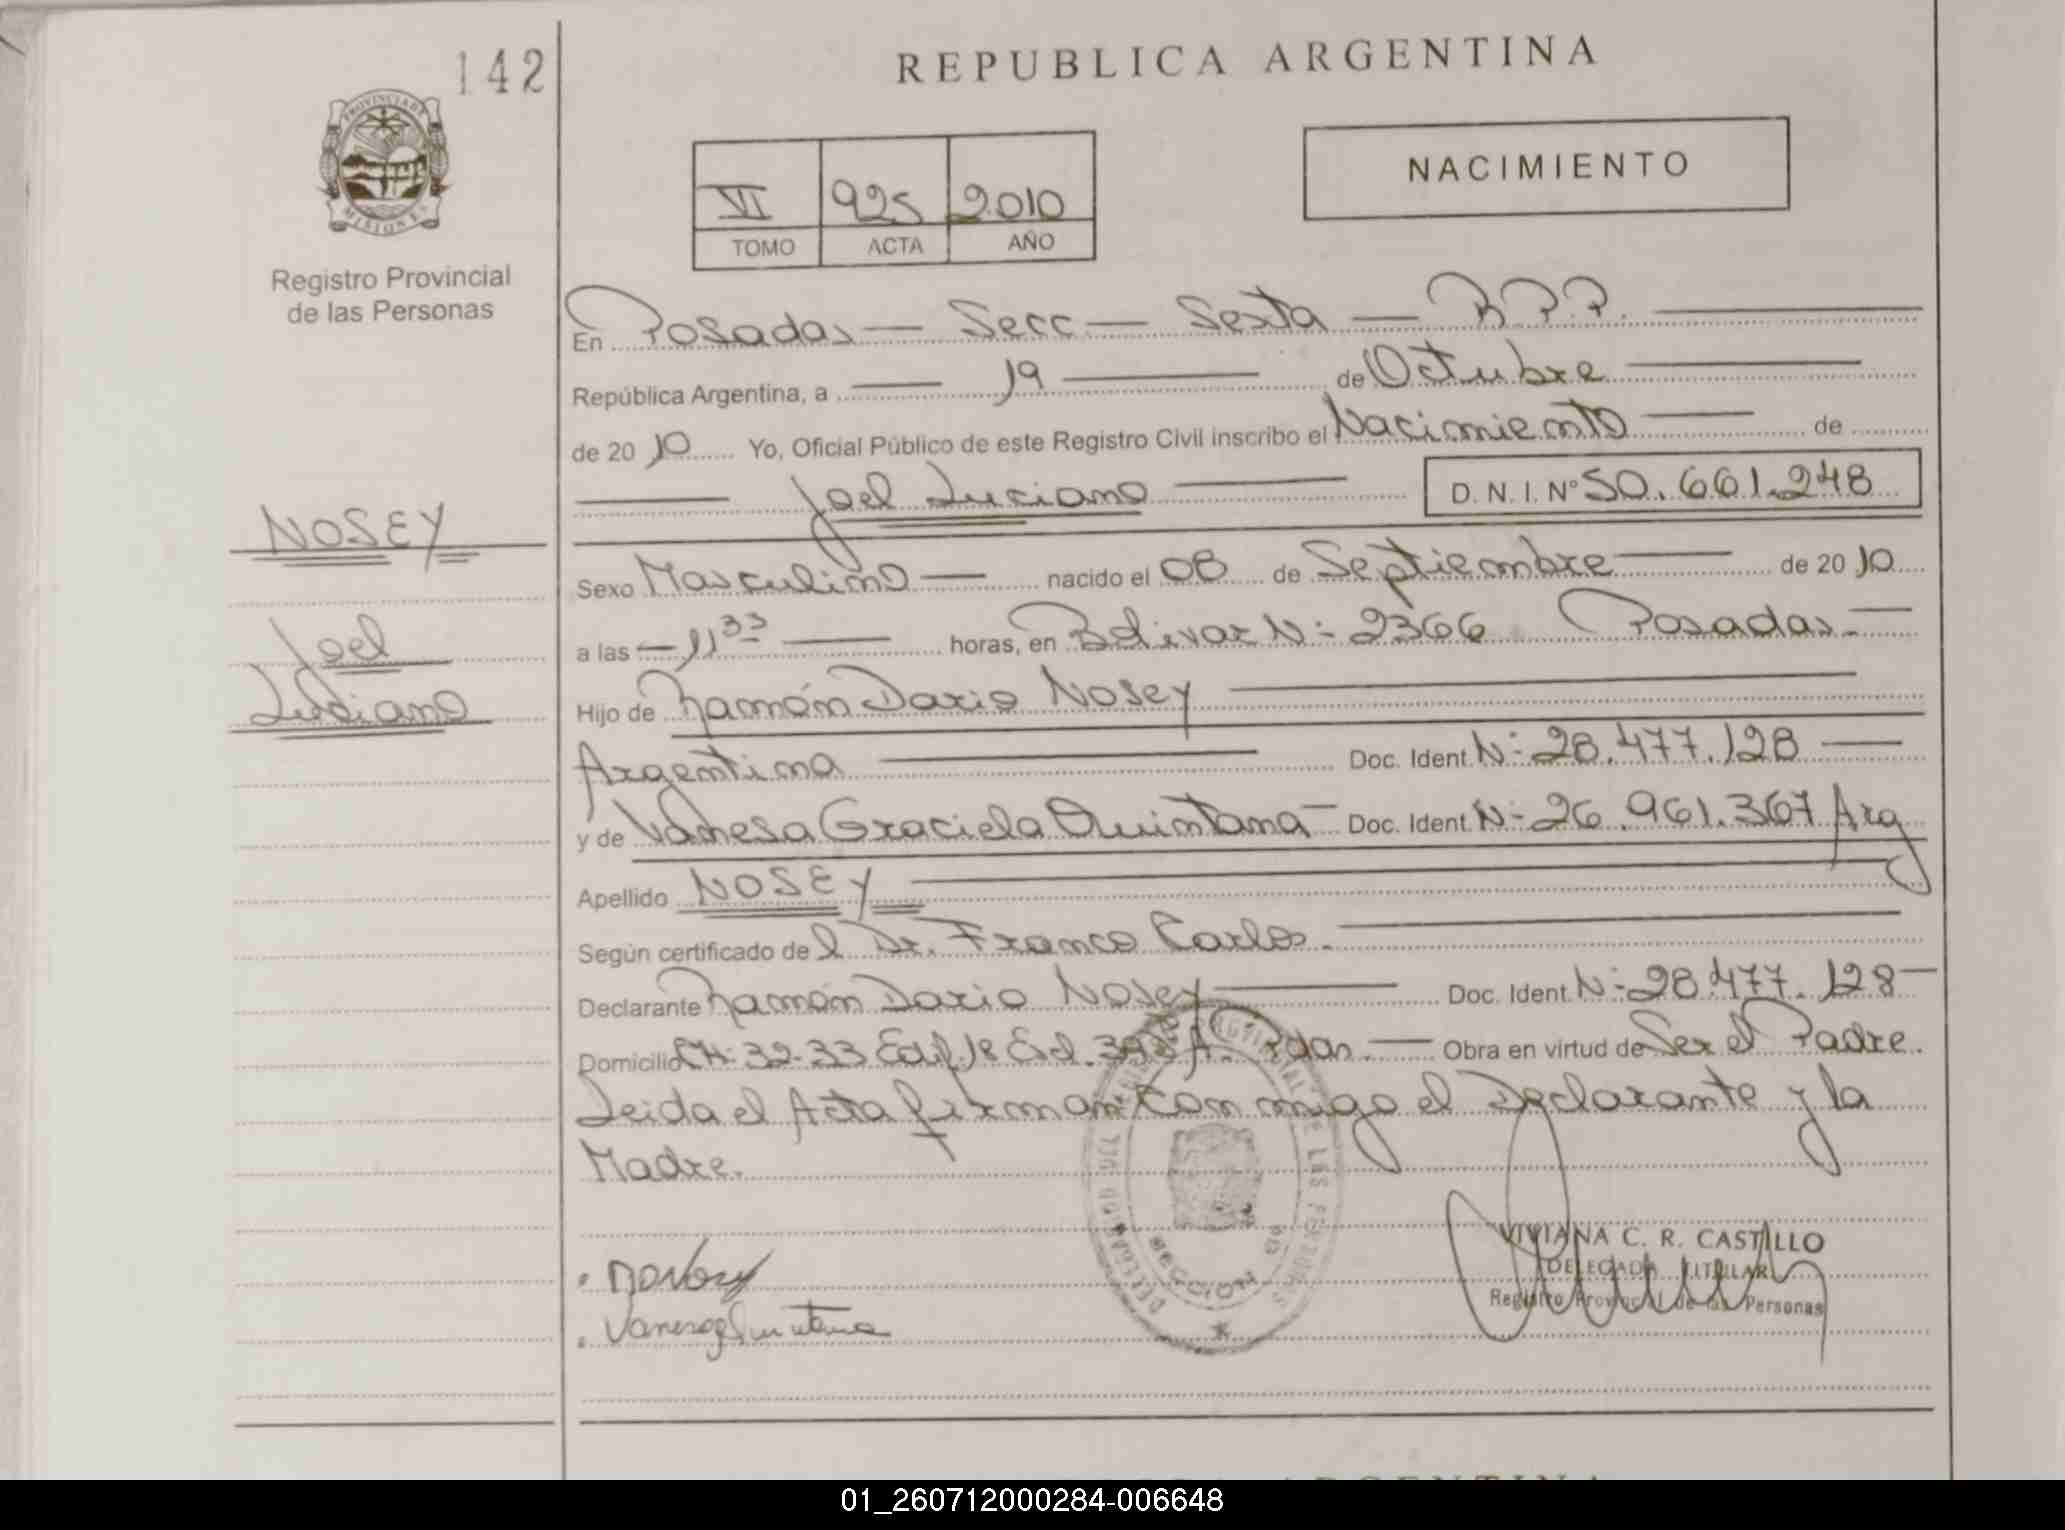 142
REPUBLICA ARGENTINA
PROVINCIA DE
MISIONES
Registro Provincial
de las Personas
VI 925 2010
TOMO ACTA AÑO
NACIMIENTO
En Posadas — Secc — Sexta — R.P.P.
República Argentina, a — 19 — de Octubre
de 2010 Yo, Oficial Público de este Registro Civil inscribo el Nacimiento — de
Joel Luciano — D.N.I. Nº 50.661.248
NOSEY
Joel
Luciano
Sexo Masculino — nacido el 08 de Septiembre — de 2010
a las — 11 33 — horas, en Bolivar N: 2366 Posadas. —
Hijo de Ramón Dario Nosey —
Argentina — Doc. Ident. N: 28.477.128 —
y de Vanesa Graciela Quintana — Doc. Ident. N: 26.961.367 Arg
Apellido NOSEY —
Según certificado de l Dr. Franco Carlos. —
Declarante Ramón Dario Nosey — Doc. Ident. N: 28.477.128 —
Domicilio CH: 32-33 Edif. 18 Esc. Pdas. — Obra en virtud de Ser el Padre.
Leida el Acta firman con migo el Declarante y la
Madre.
VIVIANA C. R. CASTILLO
DELEGADA TITULAR
Registro Provincial de las Personas
Vanesa Quintana
SECCION
01_260712000284-006648